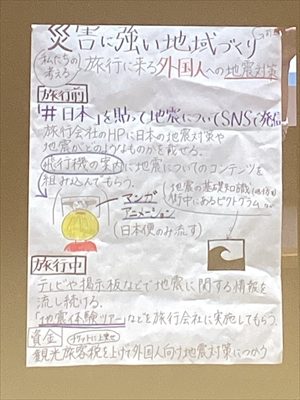 災害に強い地域づくり
私たちの考える
旅行に来る外国人への地震対策
旅行前
「#日本」を貼って地震についてSNSで発信
旅行会社のHPに日本の地震対策や
地震がどのようなものかを載せる。
飛行機の案内に地震についてのコンテンツを
組み込んでもらう。
マンガ
アニメーション
(日本便のみ流す)
地震の基礎知識
街中にあるピクトグラム
旅行中
テレビや掲示板などで地震に関する情報を
流し続ける。
「地震体験ツアー」などを旅行会社に実施してもらう。
資金
チケットに上乗せ
観光旅客税を上げて外国人向け地震対策につかう